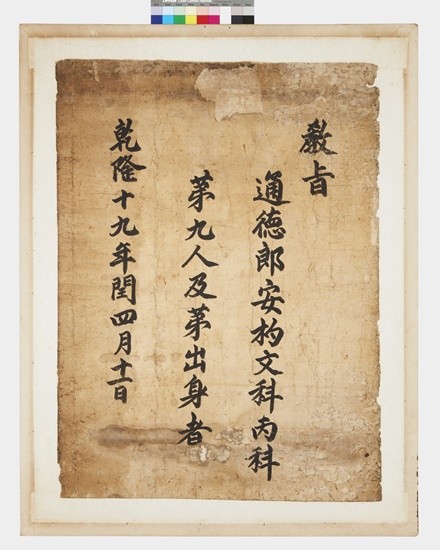 教旨
通德郎安杓文科丙科
第九人及第出身者
乾隆十九年閏四月十一日